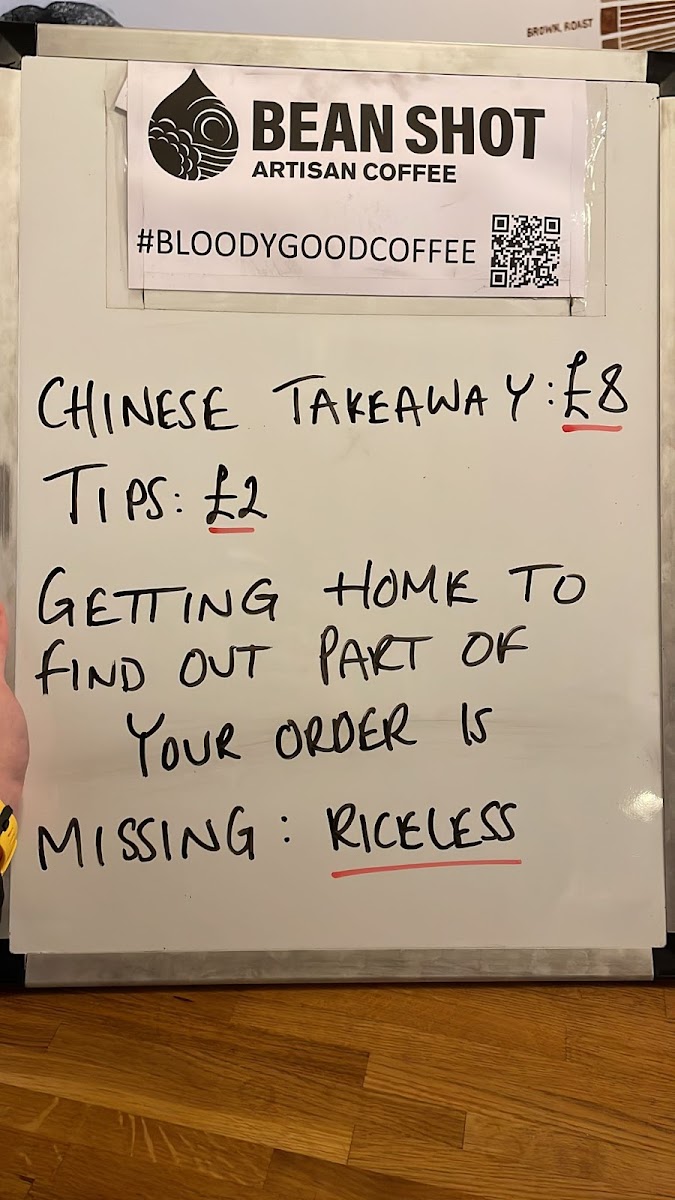 BROWN, ROAST
BEAN SHOT
ARTISAN COFFEE
#BLOODYGOODCOFFEE
CHINESE TAKEAWAY: £8
TIPS: £2
GETTING HOME TO
FIND OUT PART OF
YOUR ORDER IS
MISSING: RICELESS